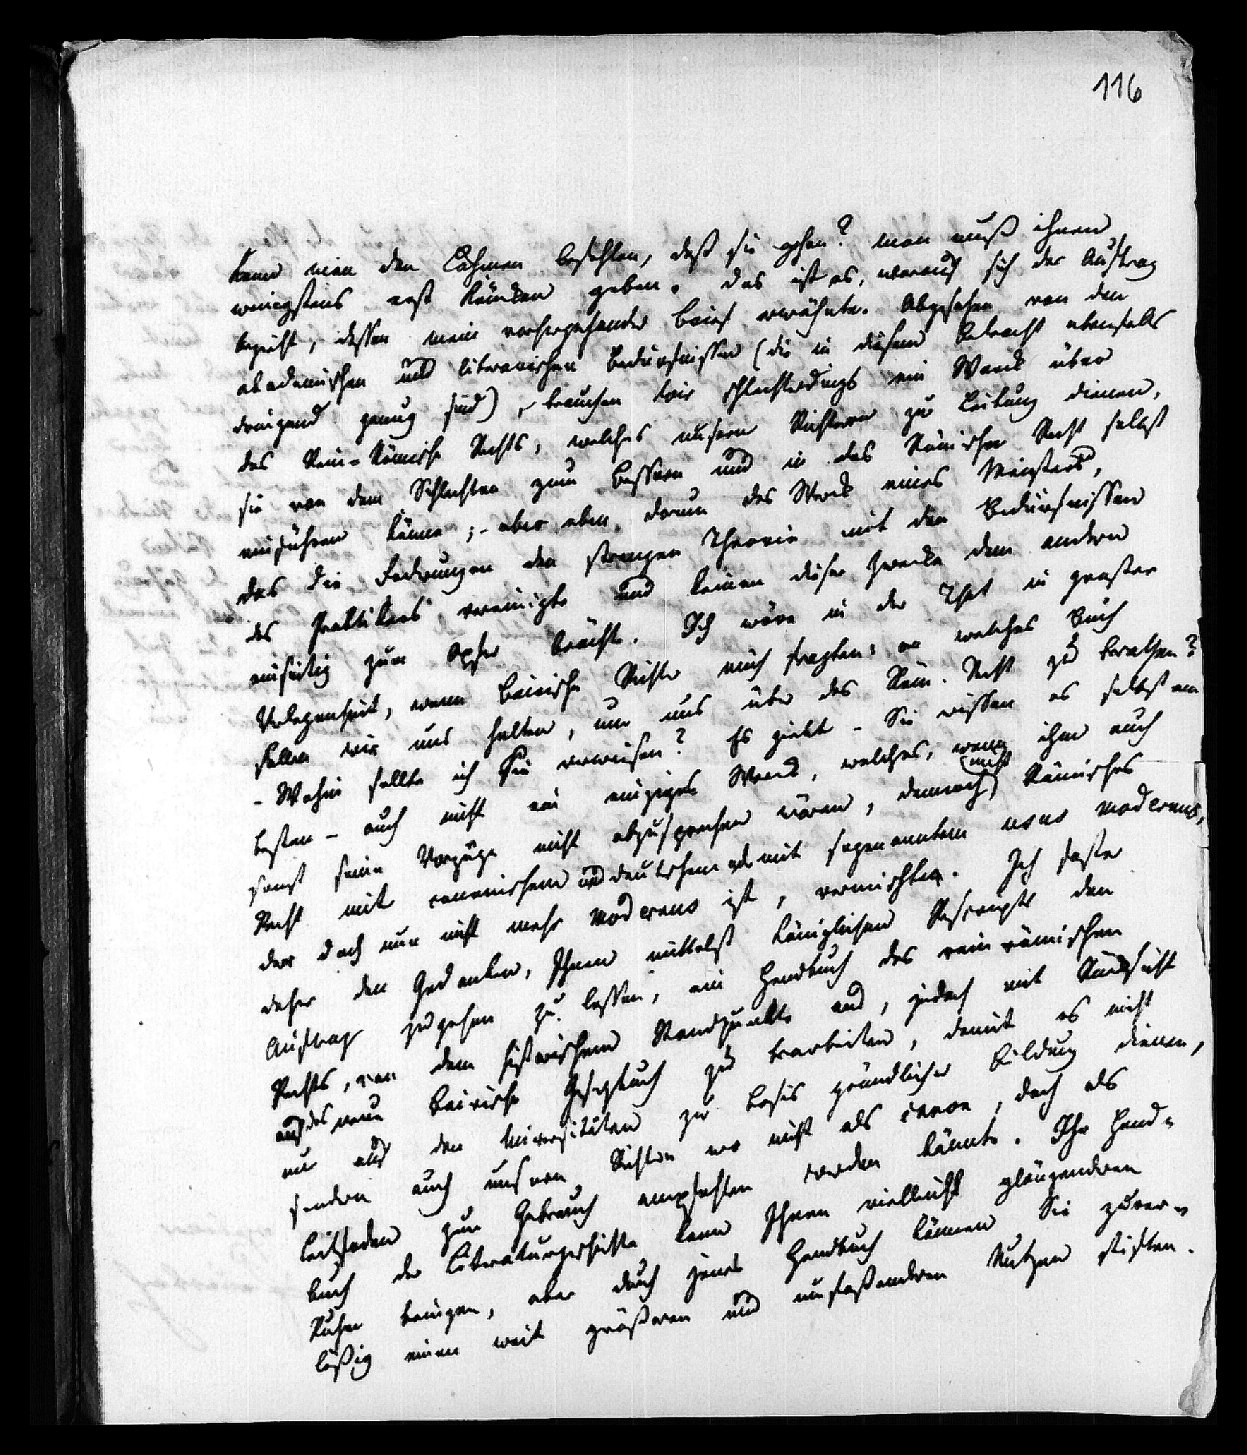 116
kann man den Lahmen befehlen, daß sie gehen? man muß ihnen
wenigstens erst Krücken geben. Das ist es, worauf sich der Auftrag
bezieht, dessen mein vorhergehender Brief erwähnte. Abgesehen von den
akademischen und literarischen Bedürfnissen (die in diesem Betracht ebenfalls
dringend genug sind), brauchen wir schlechterdings ein Werk über
das Rein-Römische Recht, welches unsern Richtern zur Leitung dienen,
sie von dem Schlechten zum Bessern und in das Römische Recht selbst
einführen könne; - aber eben darum das Werk eines Meisters,
das die Foderungen der strengen Theorie mit den Bedürfnissen
des Praktikers vereinigte und keinen dieser Zwecke dem andern
einseitig zum Opfer brächte. Ich wäre in der That in groster
Verlegenheit, wenn bairische Richter mich fragten: an welches Buch
sollen wir uns halten, um uns über das Röm. Recht zu berathen?
- Wohin sollte ich Sie verweisen? Es giebt - Sie wissen es selbst am
besten - auch nicht ein einziges Werk, welches, wenn ihm auch
sonst seine Vorzüge nicht abzusprechen wären, dennoch nicht Römisches
Recht mit canonischem und deutschem und mit sogenanntem usus modernus,
der doch nun nicht mehr modernus ist, vermischte. Ich faßte
daher den Gedanken, Ihnen mittelst Königlichen Rescripts den
Auftrag zugehen zu lassen, ein Handbuch des rein römischen
Rechts, von dem historischen Standpunkte aus, jedoch mit Rücksicht
auf das neue bairische Gesetzbuch zu bearbeiten, damit es nicht
nur auf den Universitäten zur Basis gründlicher Bildung dienen,
sondern auch unsern Richtern wo nicht als canon, doch als
Leitfaden zum Gebrauch empfohlen werden könnte. Ihr Hand-
buch der Literaturgeschichte kann Ihnen vielleicht glänzenderen
Ruhm bringen, aber durch jenes Handbuch können Sie zuver-
läßig einen weit größeren und umfaßenderen Nutzen stiften.